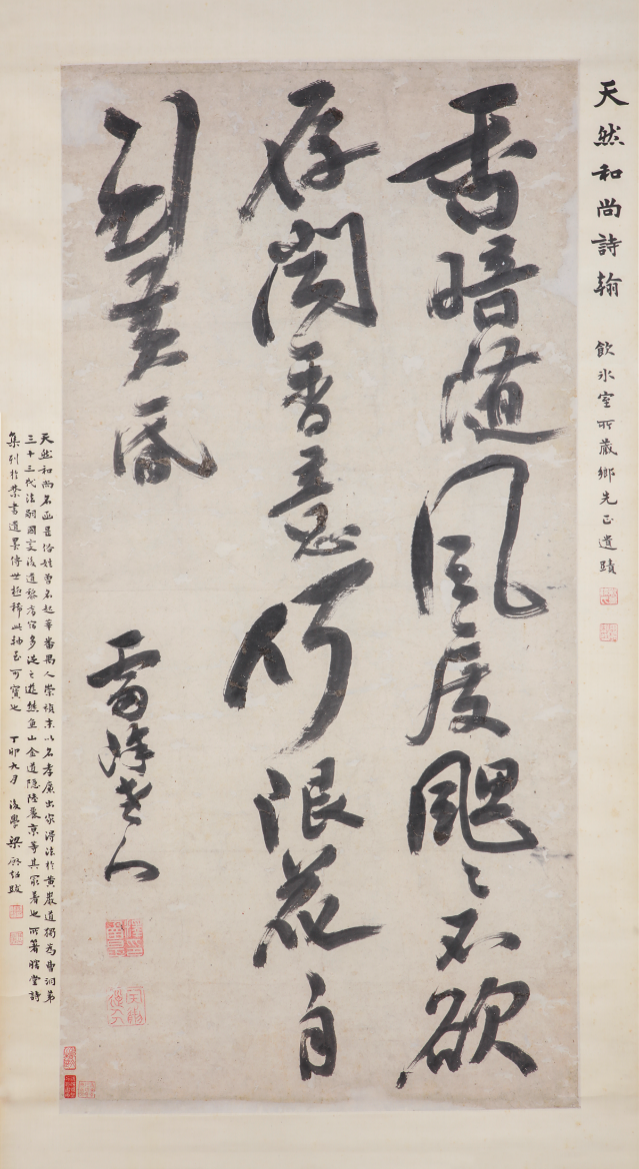 天然和尚詩翰 飲冰室所藏鄉先正遺蹟
香暗隨風度颸〻不欲
存聞香意何限花自
到黃昏
雷峰老人
天然和尚名函昰俗姓曾名起莘番禺人崇禎末以名孝廉出家得法於黃巖道獨為曹洞第
三十三代法嗣國變後遺黎耆宿多從之遊熊魚山金道隱陸麗京等其最著也所著瞎堂詩
集列於禁書遺墨傳世極稀此軸至可寶也 丁卯九月後學梁啟超跋